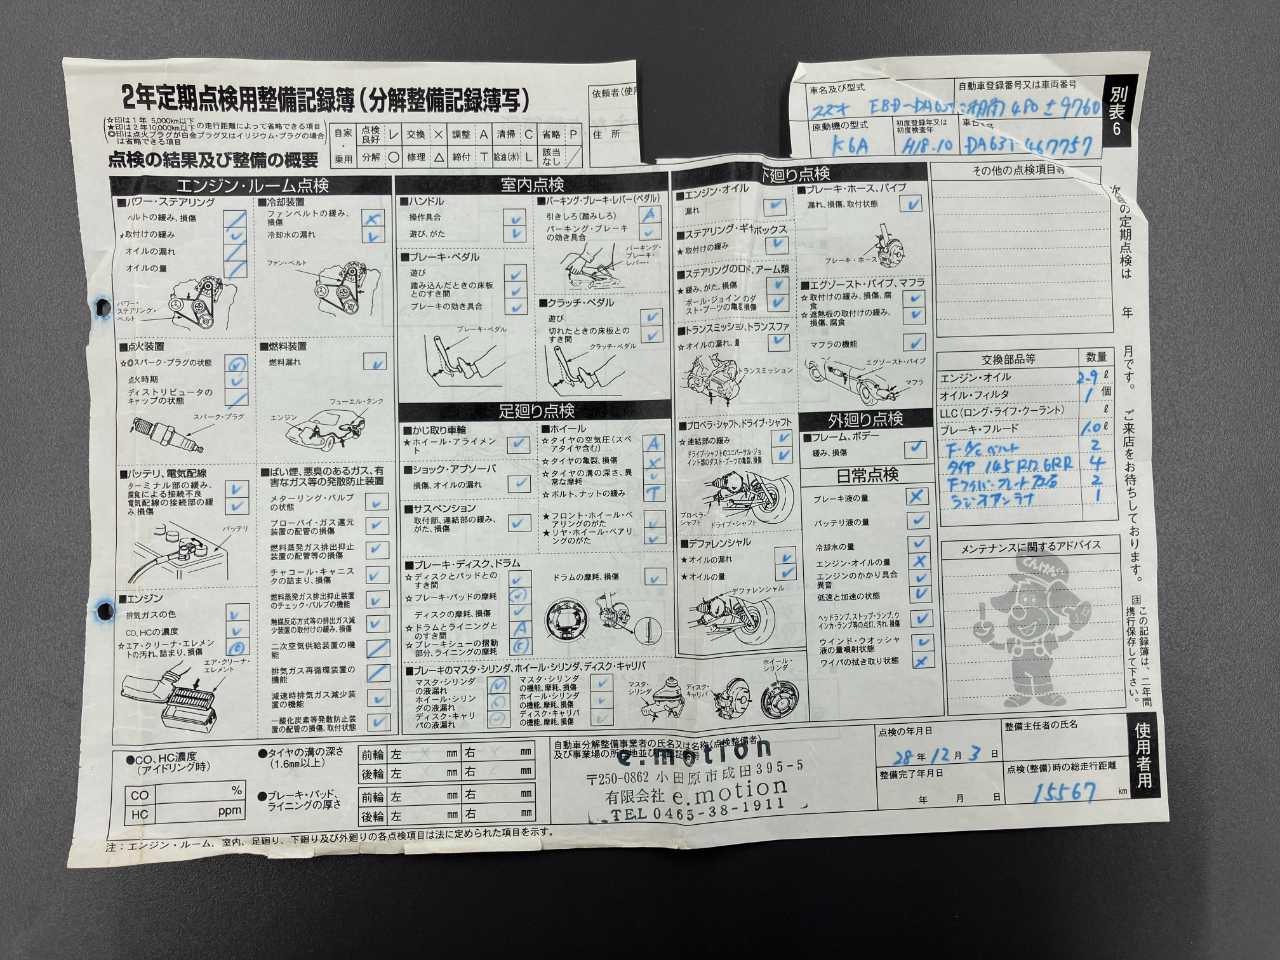 2年定期点検用整備記録簿(分解整備記録簿写)
☆印は1年 5,000km以下
★印は2年10,000km以下の走行距離によって省略できる項目
◎印は点火プラグが白金プラグ又はイリジウム・プラグの場合
は省略できる項目
点検の結果及び整備の概要
自家・乗用
点検良好 レ 交換 × 調整 A 清掃 C 省略 P
分解 ○ 修理 △ 締付 T 給油(水) L 該当なし ／
依頼者(使
住所
車名及び型式
スズキ EBD-DA63T
自動車登録番号又は車両番号
湘南 480 せ9760
原動機の型式
K6A
初度登録年又は初度検査年
H18.10
DA63T-467757
別表6
エンジン・ルーム点検
■パワー・ステアリング
ベルトの緩み、損傷
取付けの緩み
オイルの漏れ
オイルの量
パワー・ステアリング・ベルト
■冷却装置
ファンベルトの緩み、損傷
冷却水の漏れ
ファン・ベルト
■点火装置
☆◎スパーク・プラグの状態
点火時期
ディストリビュータのキャップの状態
スパーク・プラグ
■燃料装置
燃料漏れ
フューエル・タンク
エンジン
■バッテリ、電気配線
ターミナル部の緩み、腐食による接続不良
電気配線の接続部の緩み、損傷
バッテリ
■ばい煙、悪臭のあるガス、有害なガス等の発散防止装置
メターリング・バルブの状態
ブローバイ・ガス還元装置の配管の損傷
燃料蒸発ガス排出抑止装置の配管等の損傷
チャコール・キャニスタの詰まり、損傷
燃料蒸発ガス排出抑止装置のチェック・バルブの機能
触媒反応方式等の排出ガス減少装置の取付けの緩み、損傷
二次空気供給装置の機能
排気ガス再循環装置の機能
減速時排気ガス減少装置の機能
一酸化炭素等発散防止装置の配管の損傷、取付状態
■エンジン
排気ガスの色
CO、HCの濃度
☆エア・クリーナ・エレメントの汚れ、詰まり、損傷
エア・クリーナ・エレメント
室内点検
■ハンドル
操作具合
遊び、がた
■ブレーキ・ペダル
遊び
踏み込んだときの床板とのすき間
ブレーキの効き具合
ブレーキ・ペダル
■パーキング・ブレーキ・レバー(ペダル)
引きしろ(踏みしろ)
パーキング・ブレーキの効き具合
パーキング・ブレーキ・レバー
■クラッチ・ペダル
遊び
切れたときの床板とのすき間
クラッチ・ペダル
足廻り点検
■かじ取り車輪
★ホイール・アライメント
■ショック・アブソーバ
損傷、オイルの漏れ
■サスペンション
取付部、連結部の緩み、がた、損傷
■ホイール
☆タイヤの空気圧(スペアタイヤ含む)
☆タイヤの亀裂、損傷
☆タイヤの溝の深さ、異常な摩耗
☆ボルト、ナットの緩み
★フロント・ホイール・ベアリングのがた
★リヤ・ホイール・ベアリングのがた
■ブレーキ・ディスク、ドラム
☆ディスクとパッドとのすき間
☆ブレーキ・パッドの摩耗
ディスクの摩耗、損傷
☆ドラムとライニングとのすき間
☆ブレーキシューの摺動部分、ライニングの摩耗
ドラムの摩耗、損傷
■ブレーキのマスタ・シリンダ、ホイール・シリンダ、ディスク・キャリパ
マスタ・シリンダの液漏れ
ホイール・シリンダの液漏れ
ディスク・キャリパの液漏れ
マスタ・シリンダの機能、摩耗、損傷
ホイール・シリンダの機能、摩耗、損傷
ディスク・キャリパの機能、摩耗、損傷
マスタ・シリンダ
ディスク・キャリパ
ホイール・シリンダ
下廻り点検
■エンジン・オイル
漏れ
■ステアリング・ギヤボックス
★取付けの緩み
■ステアリングのロッド、アーム類
★緩み、がた、損傷
ボール・ジョイントのダスト・ブーツの亀裂、損傷
■トランスミッション、トランスファ
☆オイルの漏れ、量
トランスミッション
■プロペラ・シャフト、ドライブ・シャフト
☆連結部の緩み
ドライブ・シャフトのユニバーサル・ジョイント部のダスト・ブーツの亀裂、損傷
プロペラ・シャフト
ドライブ・シャフト
■デファレンシャル
★オイルの漏れ
★オイルの量
デファレンシャル
■ブレーキ・ホース、パイプ
漏れ、損傷、取付状態
ブレーキ・ホース
■エグゾースト・パイプ、マフラ
☆取付けの緩み、損傷、腐食
☆遮熱板の取付けの緩み、損傷、腐食
マフラの機能
エグゾースト・パイプ
マフラ
外廻り点検
■フレーム、ボデー
緩み、損傷
日常点検
ブレーキ液の量
バッテリ液の量
冷却水の量
エンジン・オイルの量
エンジンのかかり具合異音
低速と加速の状態
ヘッドランプ、ストップ・ランプ、ウインカ・ランプ等の点灯、汚れ、損傷
ウインド・ウオッシャ液の量噴射状態
ワイパの拭き取り状態
その他の点検項目等
交換部品等 数量
エンジン・オイル 2.9 ℓ
オイル・フィルタ 1 個
LLC(ロング・ライフ・クーラント) ℓ
ブレーキ・フルード 1.0 ℓ
2
タイヤ 145R12 6PR 4
2
ラジオアンテナ 1
メンテナンスに関するアドバイス
てんけんくん
次の定期点検は 年 月です。ご来店をお待ちしております。
この記録簿は、二年間携行保存して下さい。
使用者用
●CO、HC濃度(アイドリング時)
CO %
HC ppm
●タイヤの溝の深さ(1.6mm以上)
前輪 左 mm 右 mm
後輪 左 mm 右 mm
●ブレーキ・パッド、ライニングの厚さ
前輪 左 mm 右 mm
後輪 左 mm 右 mm
自動車分解整備事業者の氏名又は名称(点検整備者)
及び事業場の所在地並び
e.motion
〒250-0862 小田原市成田395-5
有限会社 e.motion
TEL 0465-38-1911
点検の年月日
28年12月3日
整備完了年月日
年 月 日
整備主任者の氏名
点検(整備)時の総走行距離
15567 km
注:エンジン・ルーム、室内、足廻り、下廻り及び外廻りの各点検項目は法に定められた項目を示す。